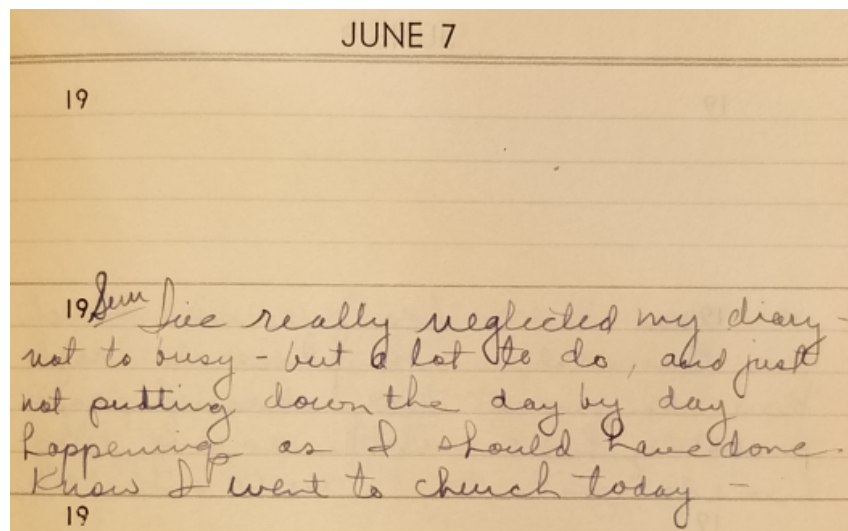 JUNE 7
19
19 Sun I've really neglected my diary -
not to busy - but a lot to do, and just
not putting down the day by day
happenings as I should have done.
Know I went to church today -
19